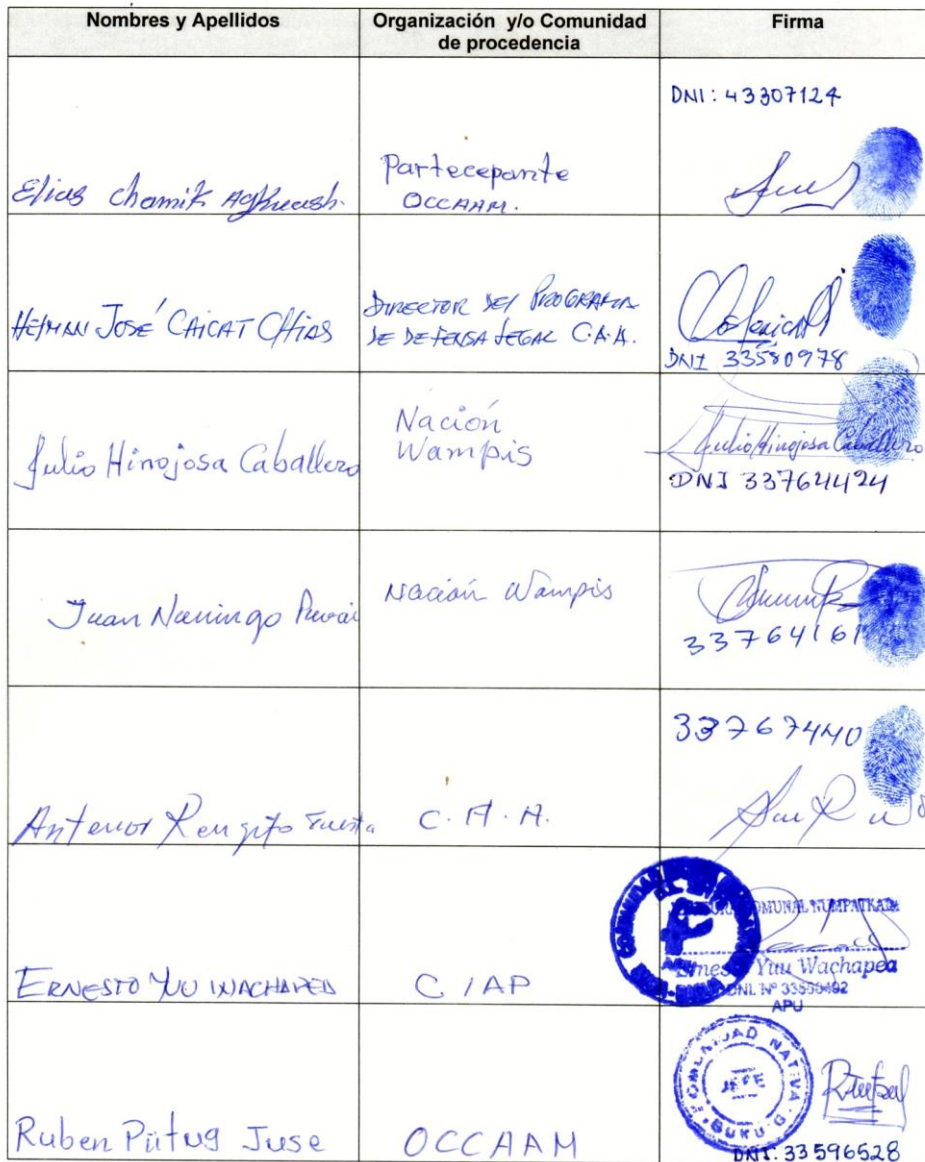 Nombres y Apellidos
Organización y/o Comunidad
de procedencia
Firma
Elias Chamik
Partecepante
OCCAAM.
DNI: 43307124
HERNAN JOSÉ CAICAT CHIAS
DIRECTOR DEL PROGRAMA
DE DEFENSA LEGAL C.A.A.
DNI 33580978
Julio Hinojosa Caballero
Nación
Wampis
Julio Hinojosa Caballero
DNI 33764424
Juan Nuningo
Nación Wampis
33764161
Antenor Rengifo
C. A. A.
33767440
ERNESTO YUU WACHAPEA
CIAP
COMUNAL NUMPATKAIM
Ernesto Yuu Wachapea
DNI. Nº
APU
Ruben Pütug Juse
OCCAAM
COMUNIDAD NATIVA
JEFE
DNI. 33596528